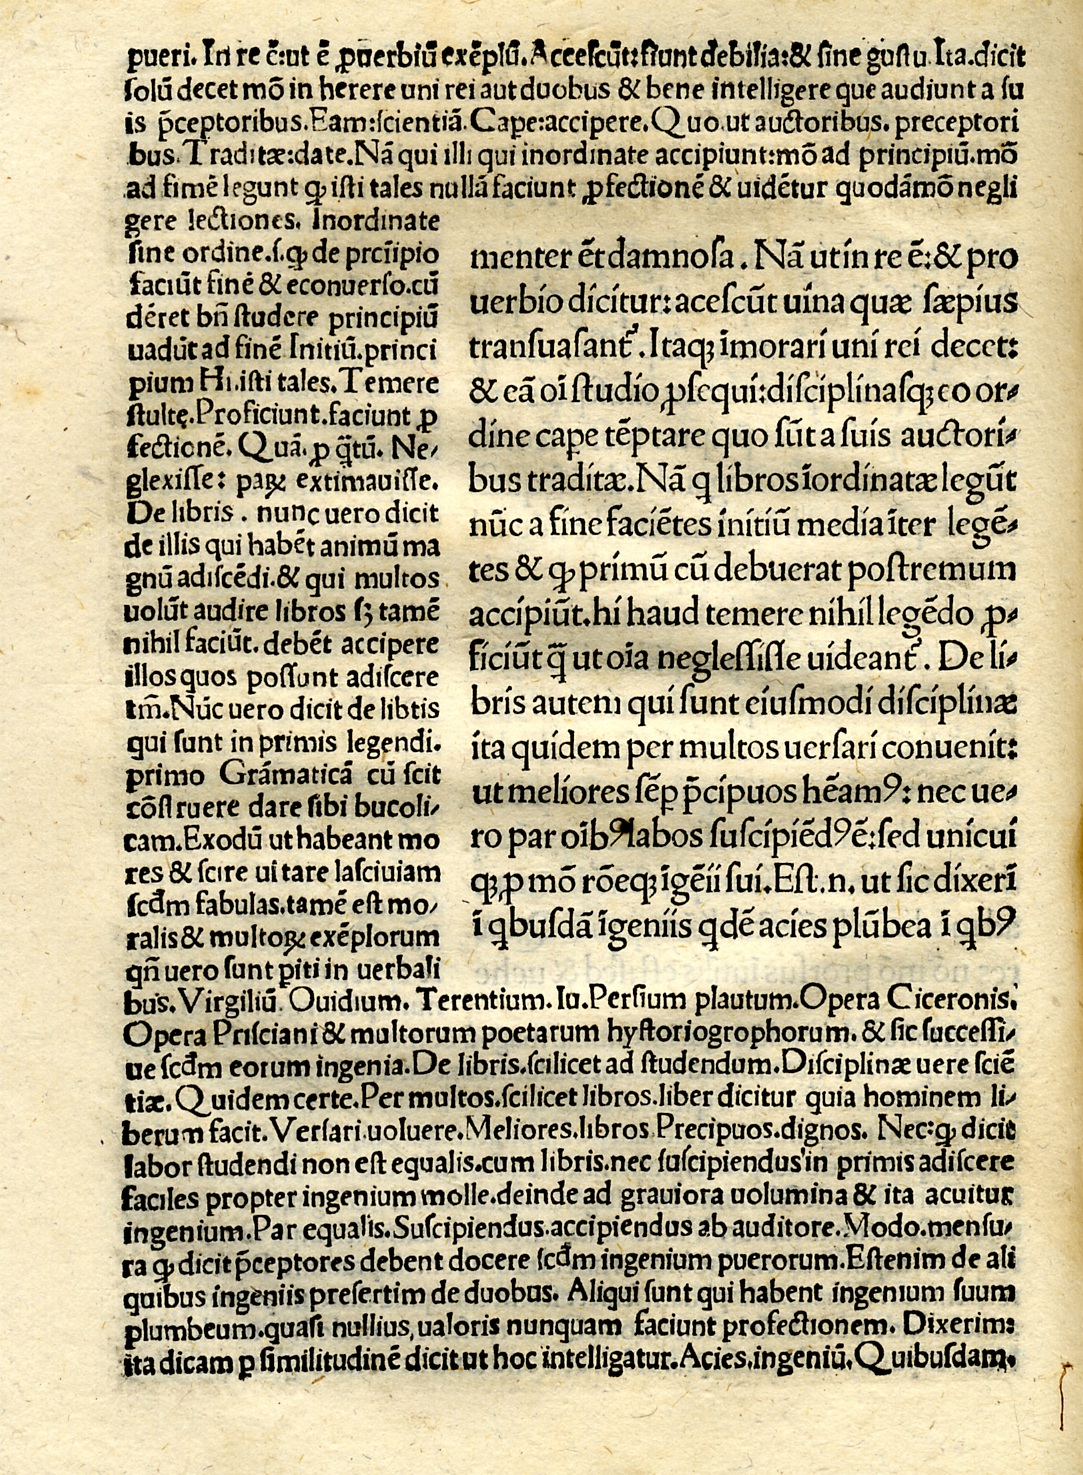 pueri. In re c̄:ut ē ꝓuerbiū exēplū. Accescūt:fiunt debilia:& sine gustu. Ita.dicit
solū decet mō in herere uni rei aut duobus & bene intelligere que audiunt a su
is p̄ceptoribus. Eam:scientiā. Cape:accipere. Quo.ut auctoribus. preceptori
bus. Traditæ:date. Nā qui illi qui inordinate accipiunt:mō ad principiū.mō
ad fimē legunt ꝙ isti tales nullā faciunt ꝓfectionē & uidētur quodāmō negli
gere lectiones. Inordinate
sine ordine.s.ꝙ de prcīipio
faciūt finē & econuerso.cū
dēret bn̄ studere principiū
uadūt ad finē Initiū.princi
pium Hi.isti tales. Temere
stultę. Proficiunt.faciunt ꝓ
fectionē. Quā.ꝓ q̄tū. Ne⸗
glexisse: paꝝ extimauisse.
De libris . nunc uero dicit
de illis qui habēt animū ma
gnū adiscēdi.& qui multos
uolūt audire libros sꝫ tamē
nihil faciūt. debēt accipere
illos quos possunt adiscere
tm̄. Nūc uero dicit de libtis
qui sunt in primis legendi.
primo Grāmaticā cū scit
cōstruere dare sibi bucoli⸗
cam. Exodū ut habeant mo
res & scire uitare lasciuiam
scd̄m fabulas.tamē est mo⸗
ralis & multoꝝ exēplorum
qn̄ uero sunt ꝑiti in uerbali
menter ēt damnosa . Nā ut in re ē:& pro
uerbio dicitur: acescūt uina quæ sæpius
transuasant᷑. Itaqꝫ īmorari uni rei decet:
& eā oī studio ꝓsequi:disciplinasqꝫ eo or⸗
dine cape tēptare quo sūt a suis auctori⸗
bus traditæ. Nā q libros īordinatæ legūt
nūc a fine faciētes initiū media īter legē⸗
tes & ꝙ primū cū debuerat postremum
accipiūt.hi haud temere nihil legēdo ꝓ⸗
ficiūt q̄ ut oīa neglessisse uideant᷑. De li⸗
bris autem qui sunt eiusmodi disciplinæ
ita quidem per multos uersari conuenit:
ut meliores sēꝑ p̄cipuos hēamꝰ: nec ue⸗
ro par oībꝰ labos suscipiēdꝰ ē:sed unicui
qꝫ ꝓ mō rōeqꝫ īgēii sui. Est.n. ut sic dixerī
ī qbusdā īgeniis qdē acies plūbea ī qbꝰ
bus. Virgiliū. Ouidium. Terentium. Iu. Persium plautum. Opera Ciceronis.
Opera Prisciani & multorum poetarum hystoriogrophorum. & sic successi⸗
ue scd̄m eorum ingenia. De libris.scilicet ad studendum. Disciplinæ uere sciē
tiæ. Quidem certe. Per multos.scilicet libros.liber dicitur quia hominem li⸗
berum facit. Versari.uoluere. Meliores.libros Precipuos.dignos. Nec:ꝙ dicit
labor studendi non est equalis.cum libris.nec suscipiendus in primis adiscere
faciles propter ingenium molle.deinde ad grauiora uolumina & ita acuitur
ingenium. Par equalis. Suscipiendus.accipiendus ab auditore. Modo.mensu⸗
ra ꝙ dicit p̄ceptores debent docere scd̄m ingenium puerorum. Est enim de ali
quibus ingeniis presertim de duobus. Aliqui sunt qui habent ingenium suum
plumbeum.quasi nullius,ualoris nunquam faciunt profectionem. Dixerim:
ita dicam ꝑ similitudinē dicit ut hoc intelligatur. Acies.ingeniū. Quibusdam.